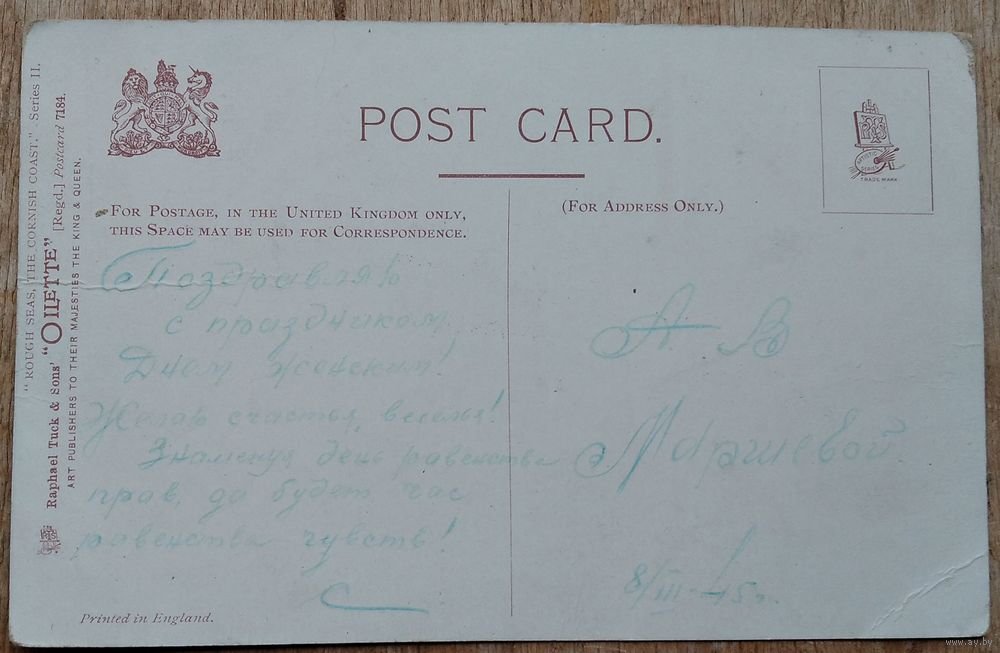 "ROUGH SEAS, THE CORNISH COAST." Series II.
Raphael Tuck & Sons' "OILETTE" [Regd.] Postcard 7184.
ART PUBLISHERS TO THEIR MAJESTIES THE KING & QUEEN.
POST CARD.
ARTISTIC SERIES
TRADE MARK
FOR POSTAGE, IN THE UNITED KINGDOM ONLY,
THIS SPACE MAY BE USED FOR CORRESPONDENCE.
(FOR ADDRESS ONLY.)
Поздравляю
с праздником
Днем женским!
Желаю счастья, веселья!
Знаменуя день равенства
прав, да будет час
равенства чувств!
С
А В
Маршевой
8/III-45г.
Printed in England.
www.ay.by